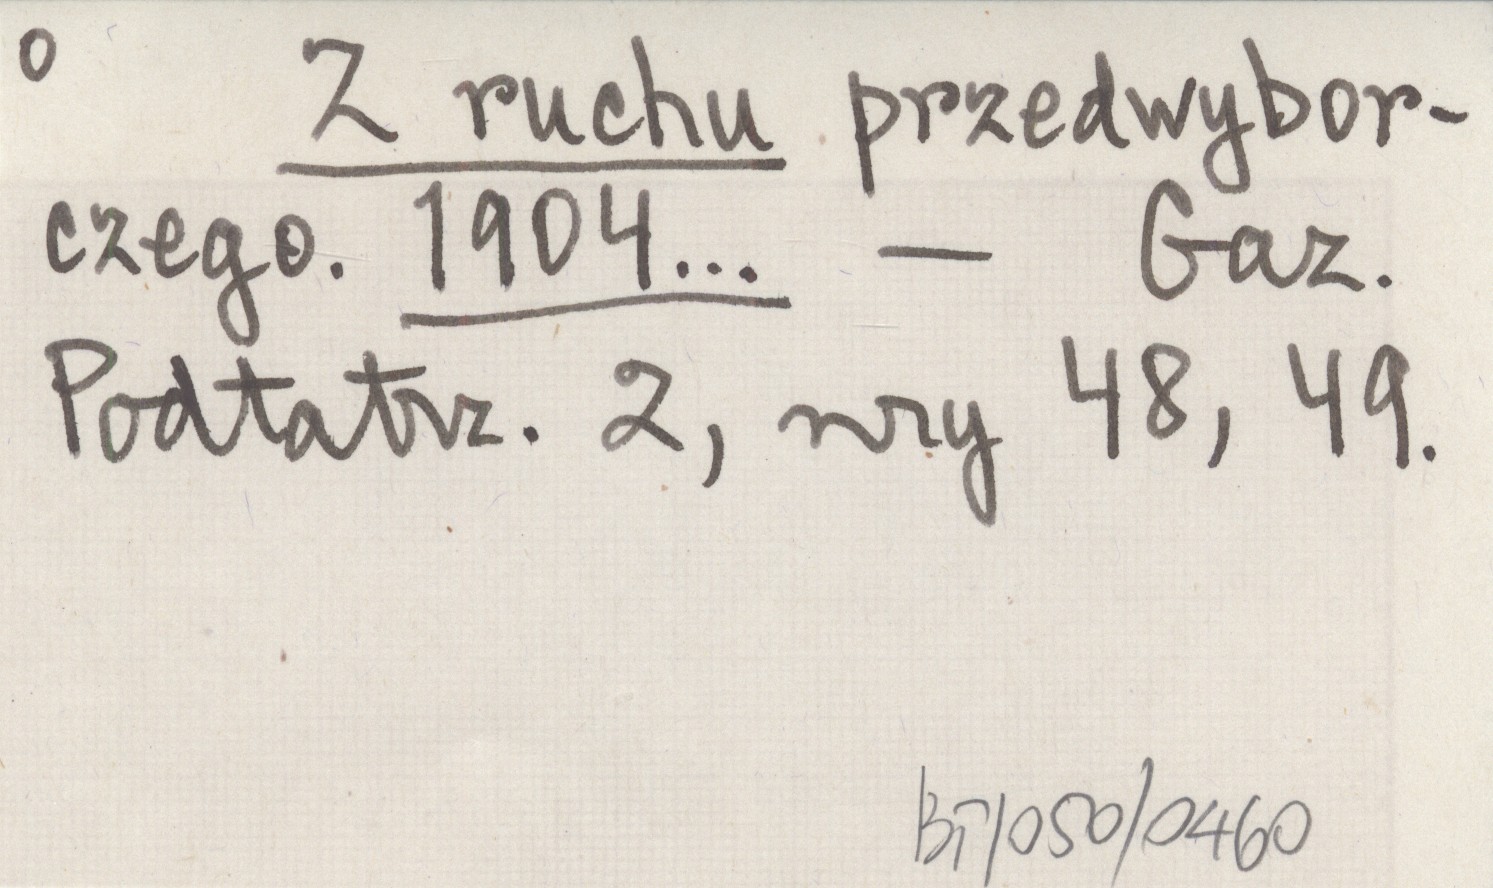 o Z ruchu przedwybor-
czego. 1904... — Gaz.
Podtatrz. 2, nry 48, 49.
BT/050/0460